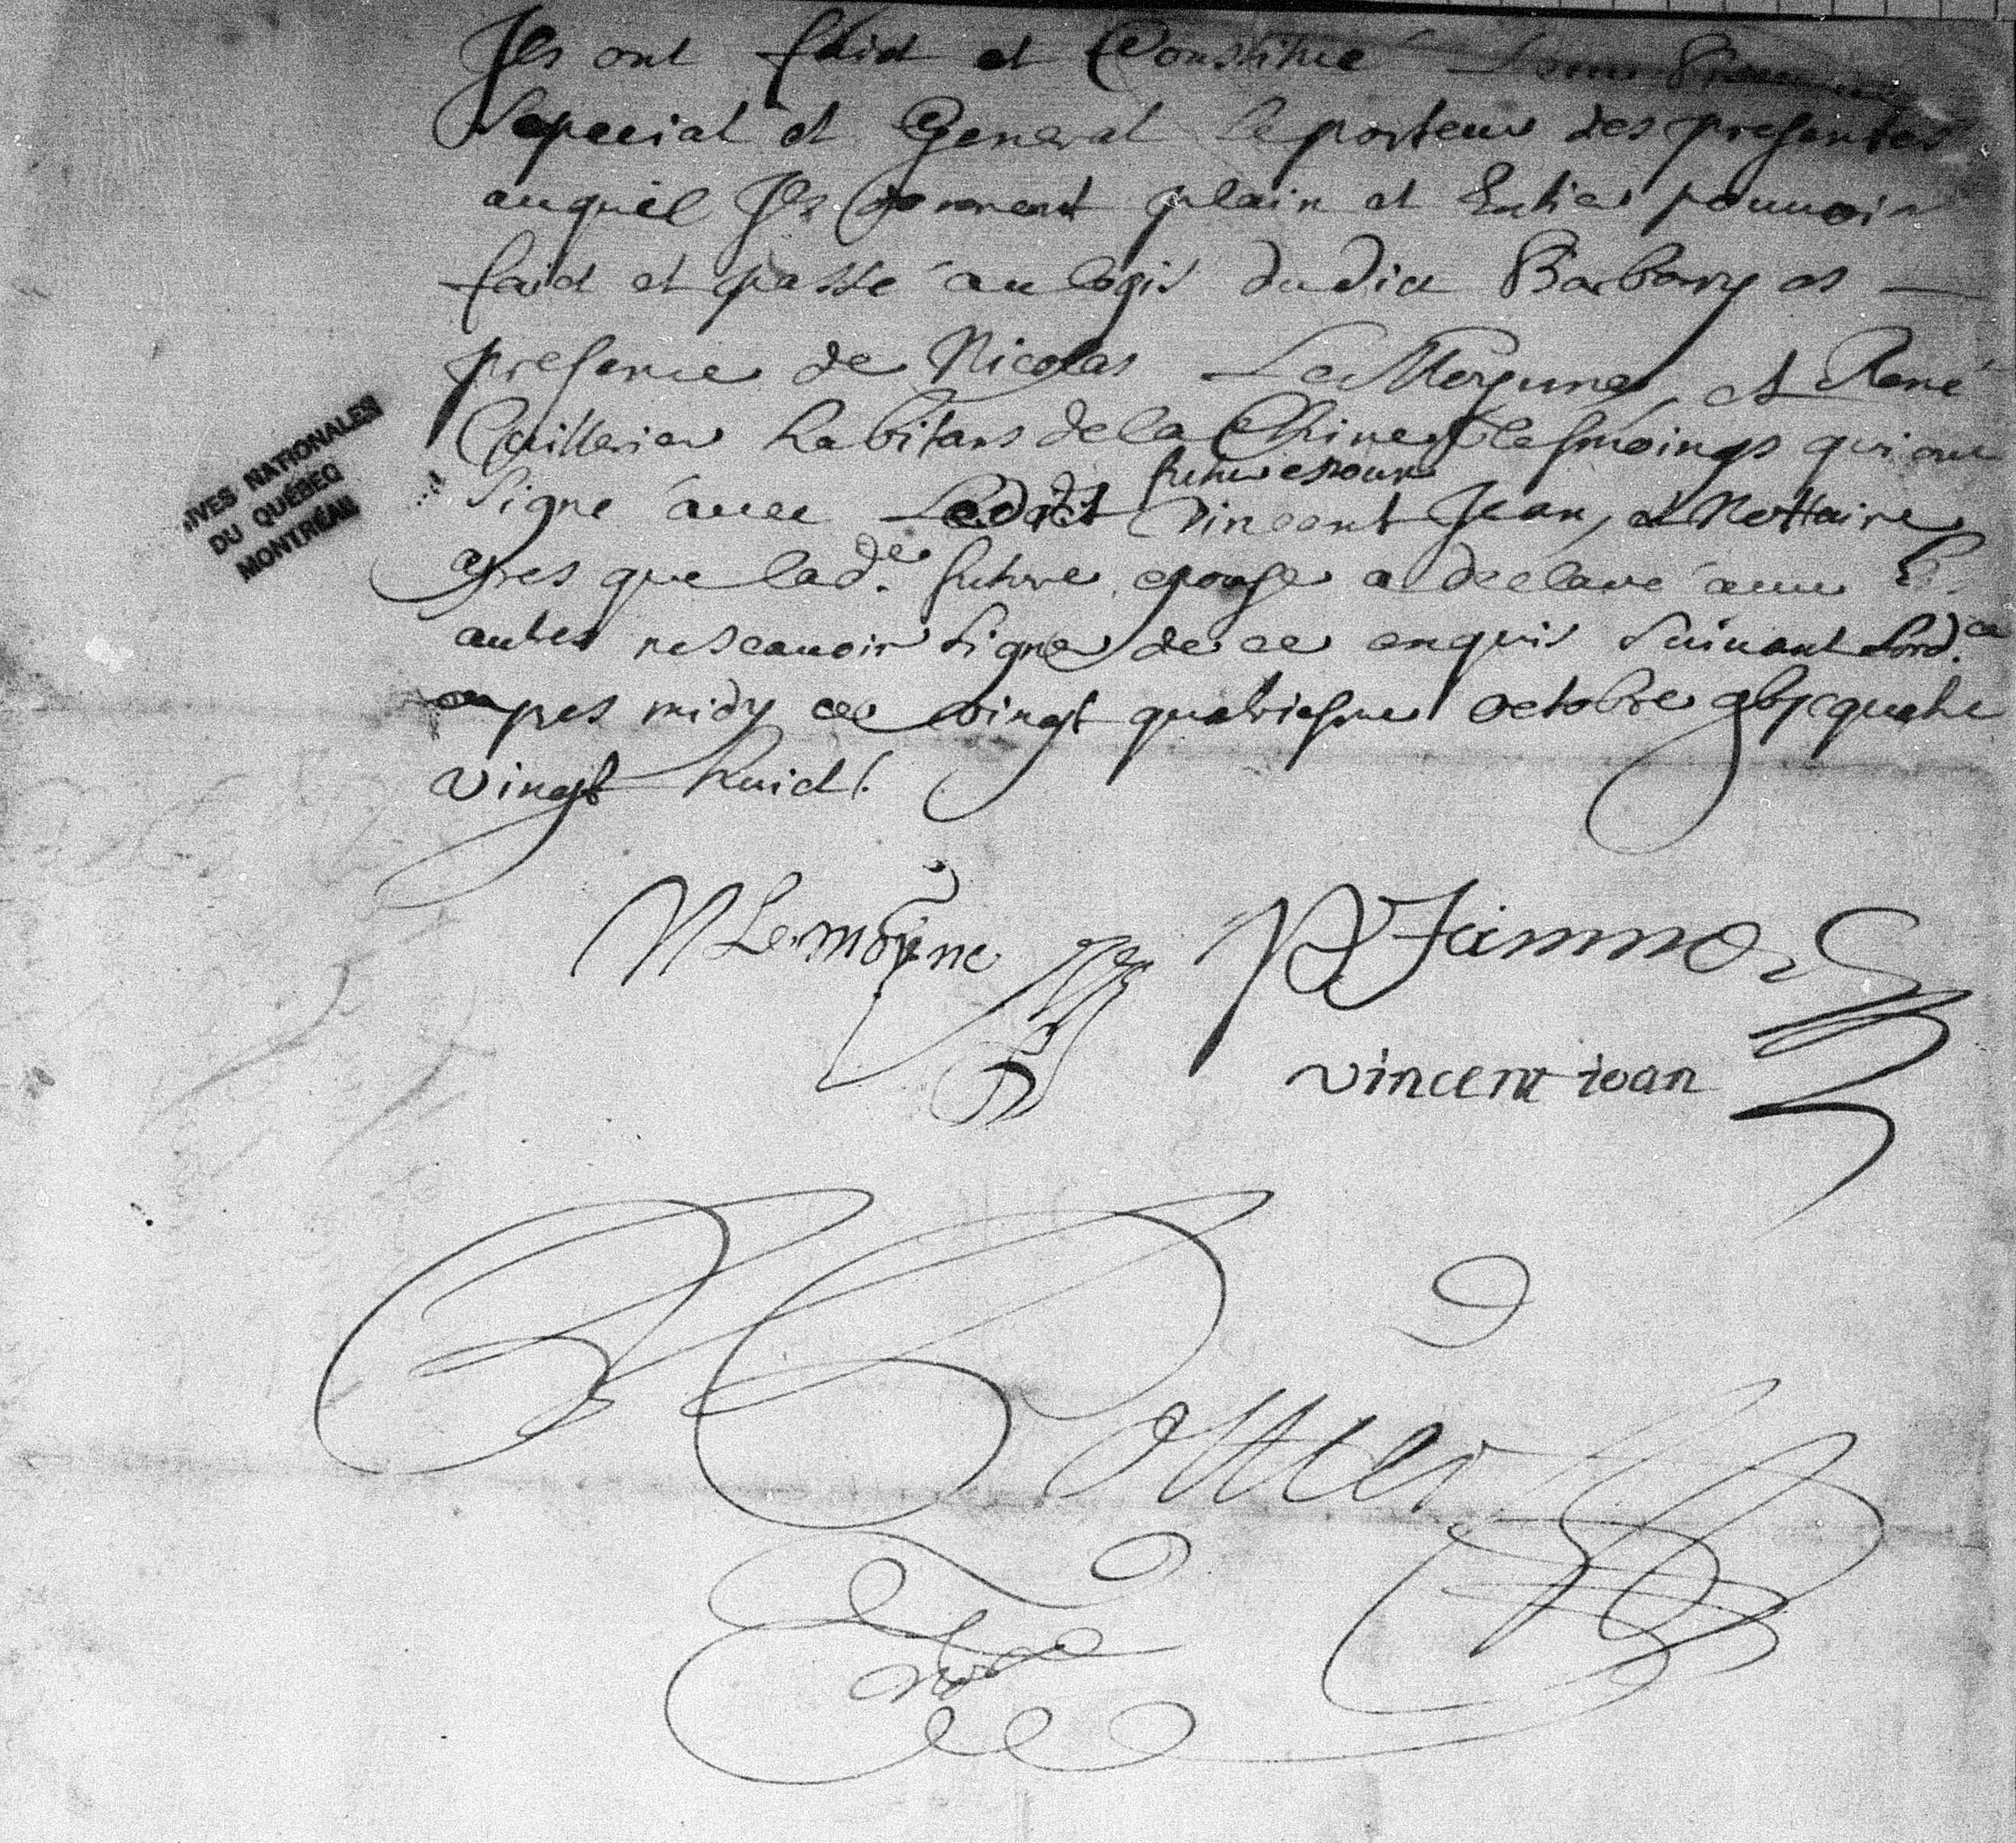 Ils ont faict et Constitué Leur
Special et General le porteur des presentes
auquel Ils donnent plain et Entier pouuoir
faict et passé au logis dudict Barbary es
presence de Nicolas Le Moyne, et René
Cuillerier habitans de la Chine tesmoings qui ont
futur espoux
Signé auec Ledict Vincent Jean, et Nottaire
apres que lad.e future epouse a declaré auec
autres ne scauoir Signer de ce enquis Suiuant Lord.ce
apres midy ce vingt quatriesme octobre gbjc quatre
vingt huict.
IVES NATIONALES
DU QUÉBEC
MONTRÉAL
N Lemoyne
vincent ioan
Pottier